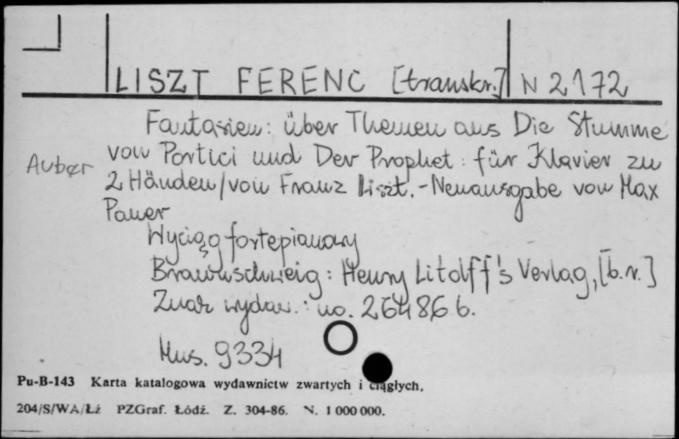 LISZT FERENC [transkr.] N 2172
Fantasien: über Themen aus Die Stumme
Auber von Portici und Der Prophet: für Klavier zu
2 Händen / von Franz Liszt. - Neuausgabe von Max
Pauer
Wyciąg fortepianowy
Braunschweig: Henry Litolff's Verlag, [b.r.]
Znak wydaw.: no. 264866.
Mus. 9334
Pu-B-143 Karta katalogowa wydawnictw zwartych i ciągłych.
204/S/WA/Łź PZGraf. Łódź. Z. 304-86. N. 1 000 000.